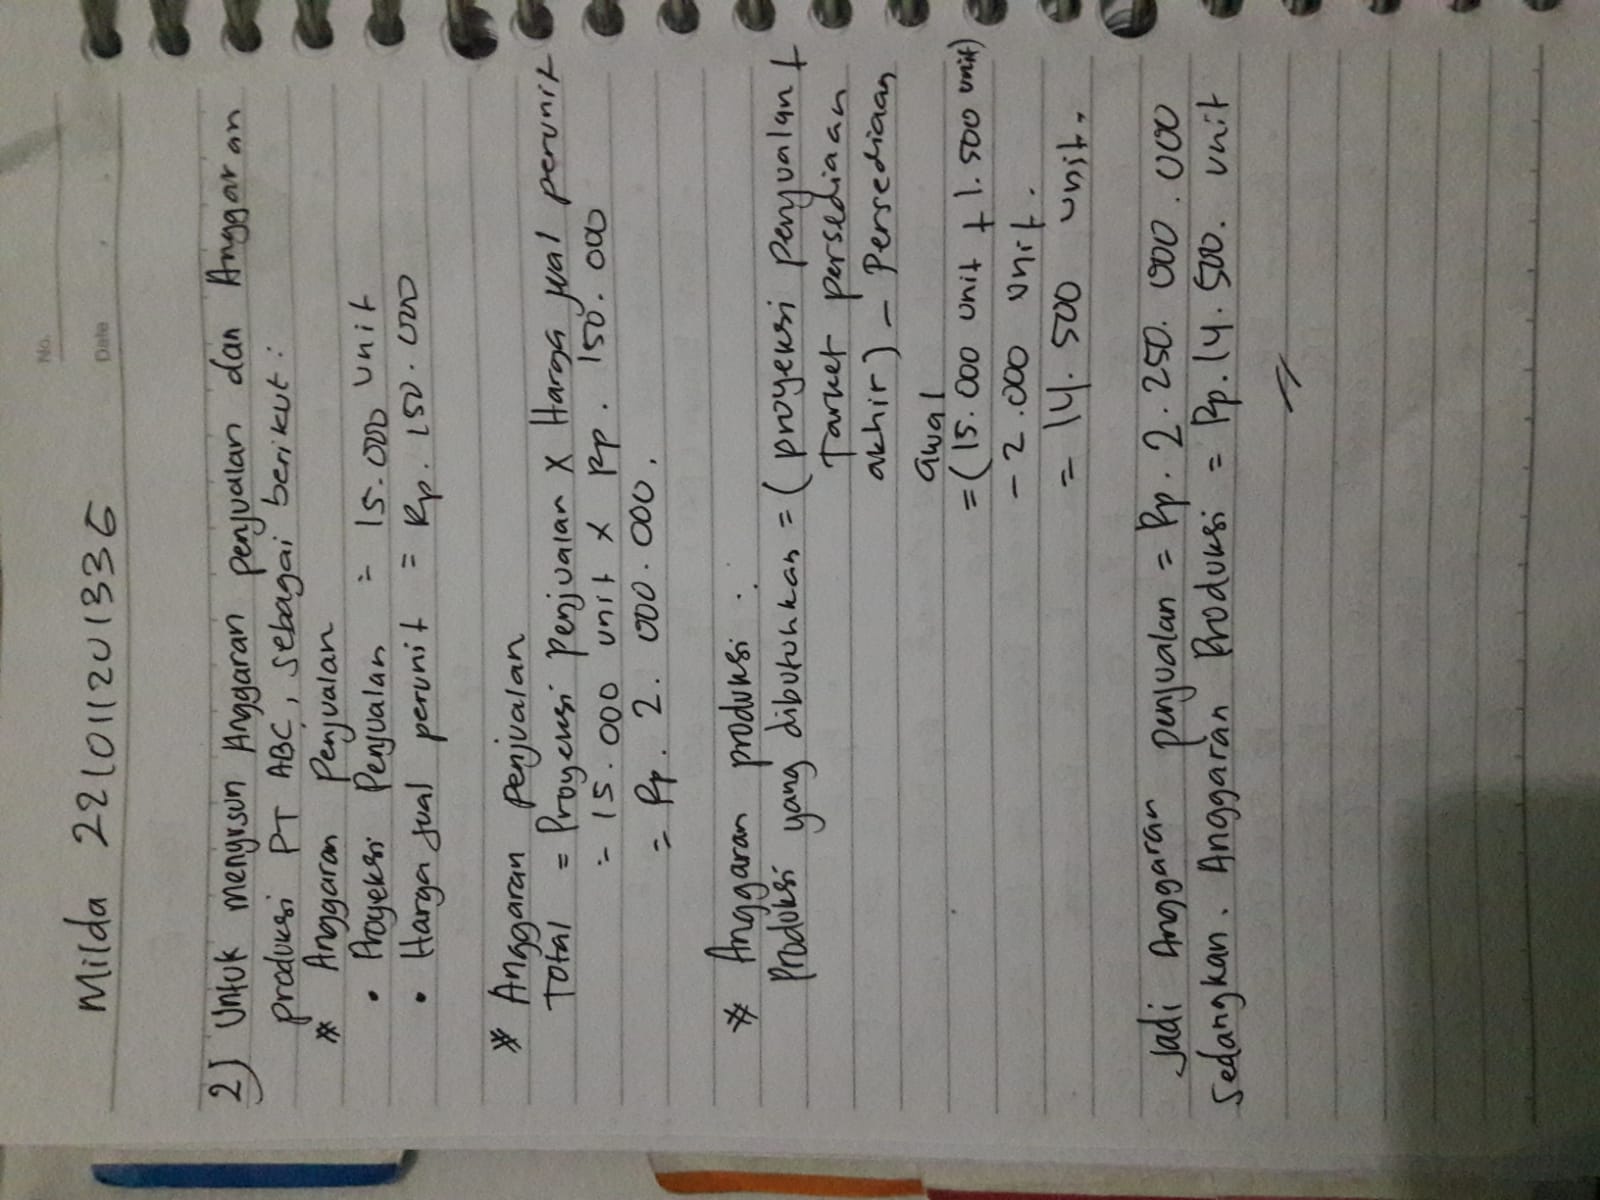 No.
Date
Milda 221011201336
2) Untuk menyusun Anggaran penjualan dan Anggaran
produksi PT ABC, sebagai berikut:
* Anggaran Penjualan
• Proyeksi Penjualan = 15.000 unit
• Harga jual perunit = Rp. 150.000
* Anggaran penjualan
Total = Proyeksi Penjualan X Harga jual perunit
= 15.000 unit x Rp. 150.000
= Rp. 2.000.000.
* Anggaran produksi:
Produksi yang dibutuhkan = (proyeksi penjualan +
Target persediaan
akhir) - Persediaan
awal
= (15.000 unit + 1.500 unit)
- 2.000 unit.
= 14.500 unit.
Jadi Anggaran penjualan = Rp. 2.250.000.000
Sedangkan. Anggaran Produksi = Rp. 14.500. unit